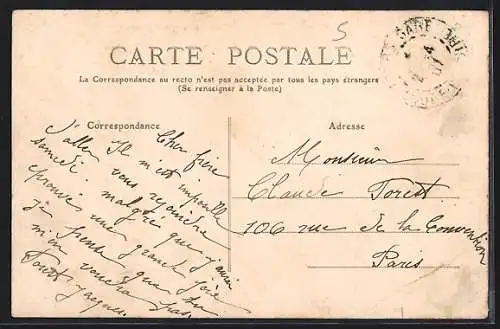 5
CARTE POSTALE
La Correspondance au recto n'est pas acceptée par tous les pays étrangers
(Se renseigner à la Poste)
Correspondance
Adresse
Cher frère
Il m'est impossible
d'aller vous rejoindre
samedi. malgré que j'aurai
éprouvé une grande joie
je pense que tu
m'en voudra pas.
Monsieur
Claude Forest
106 rue de la Convention
Paris
GARE